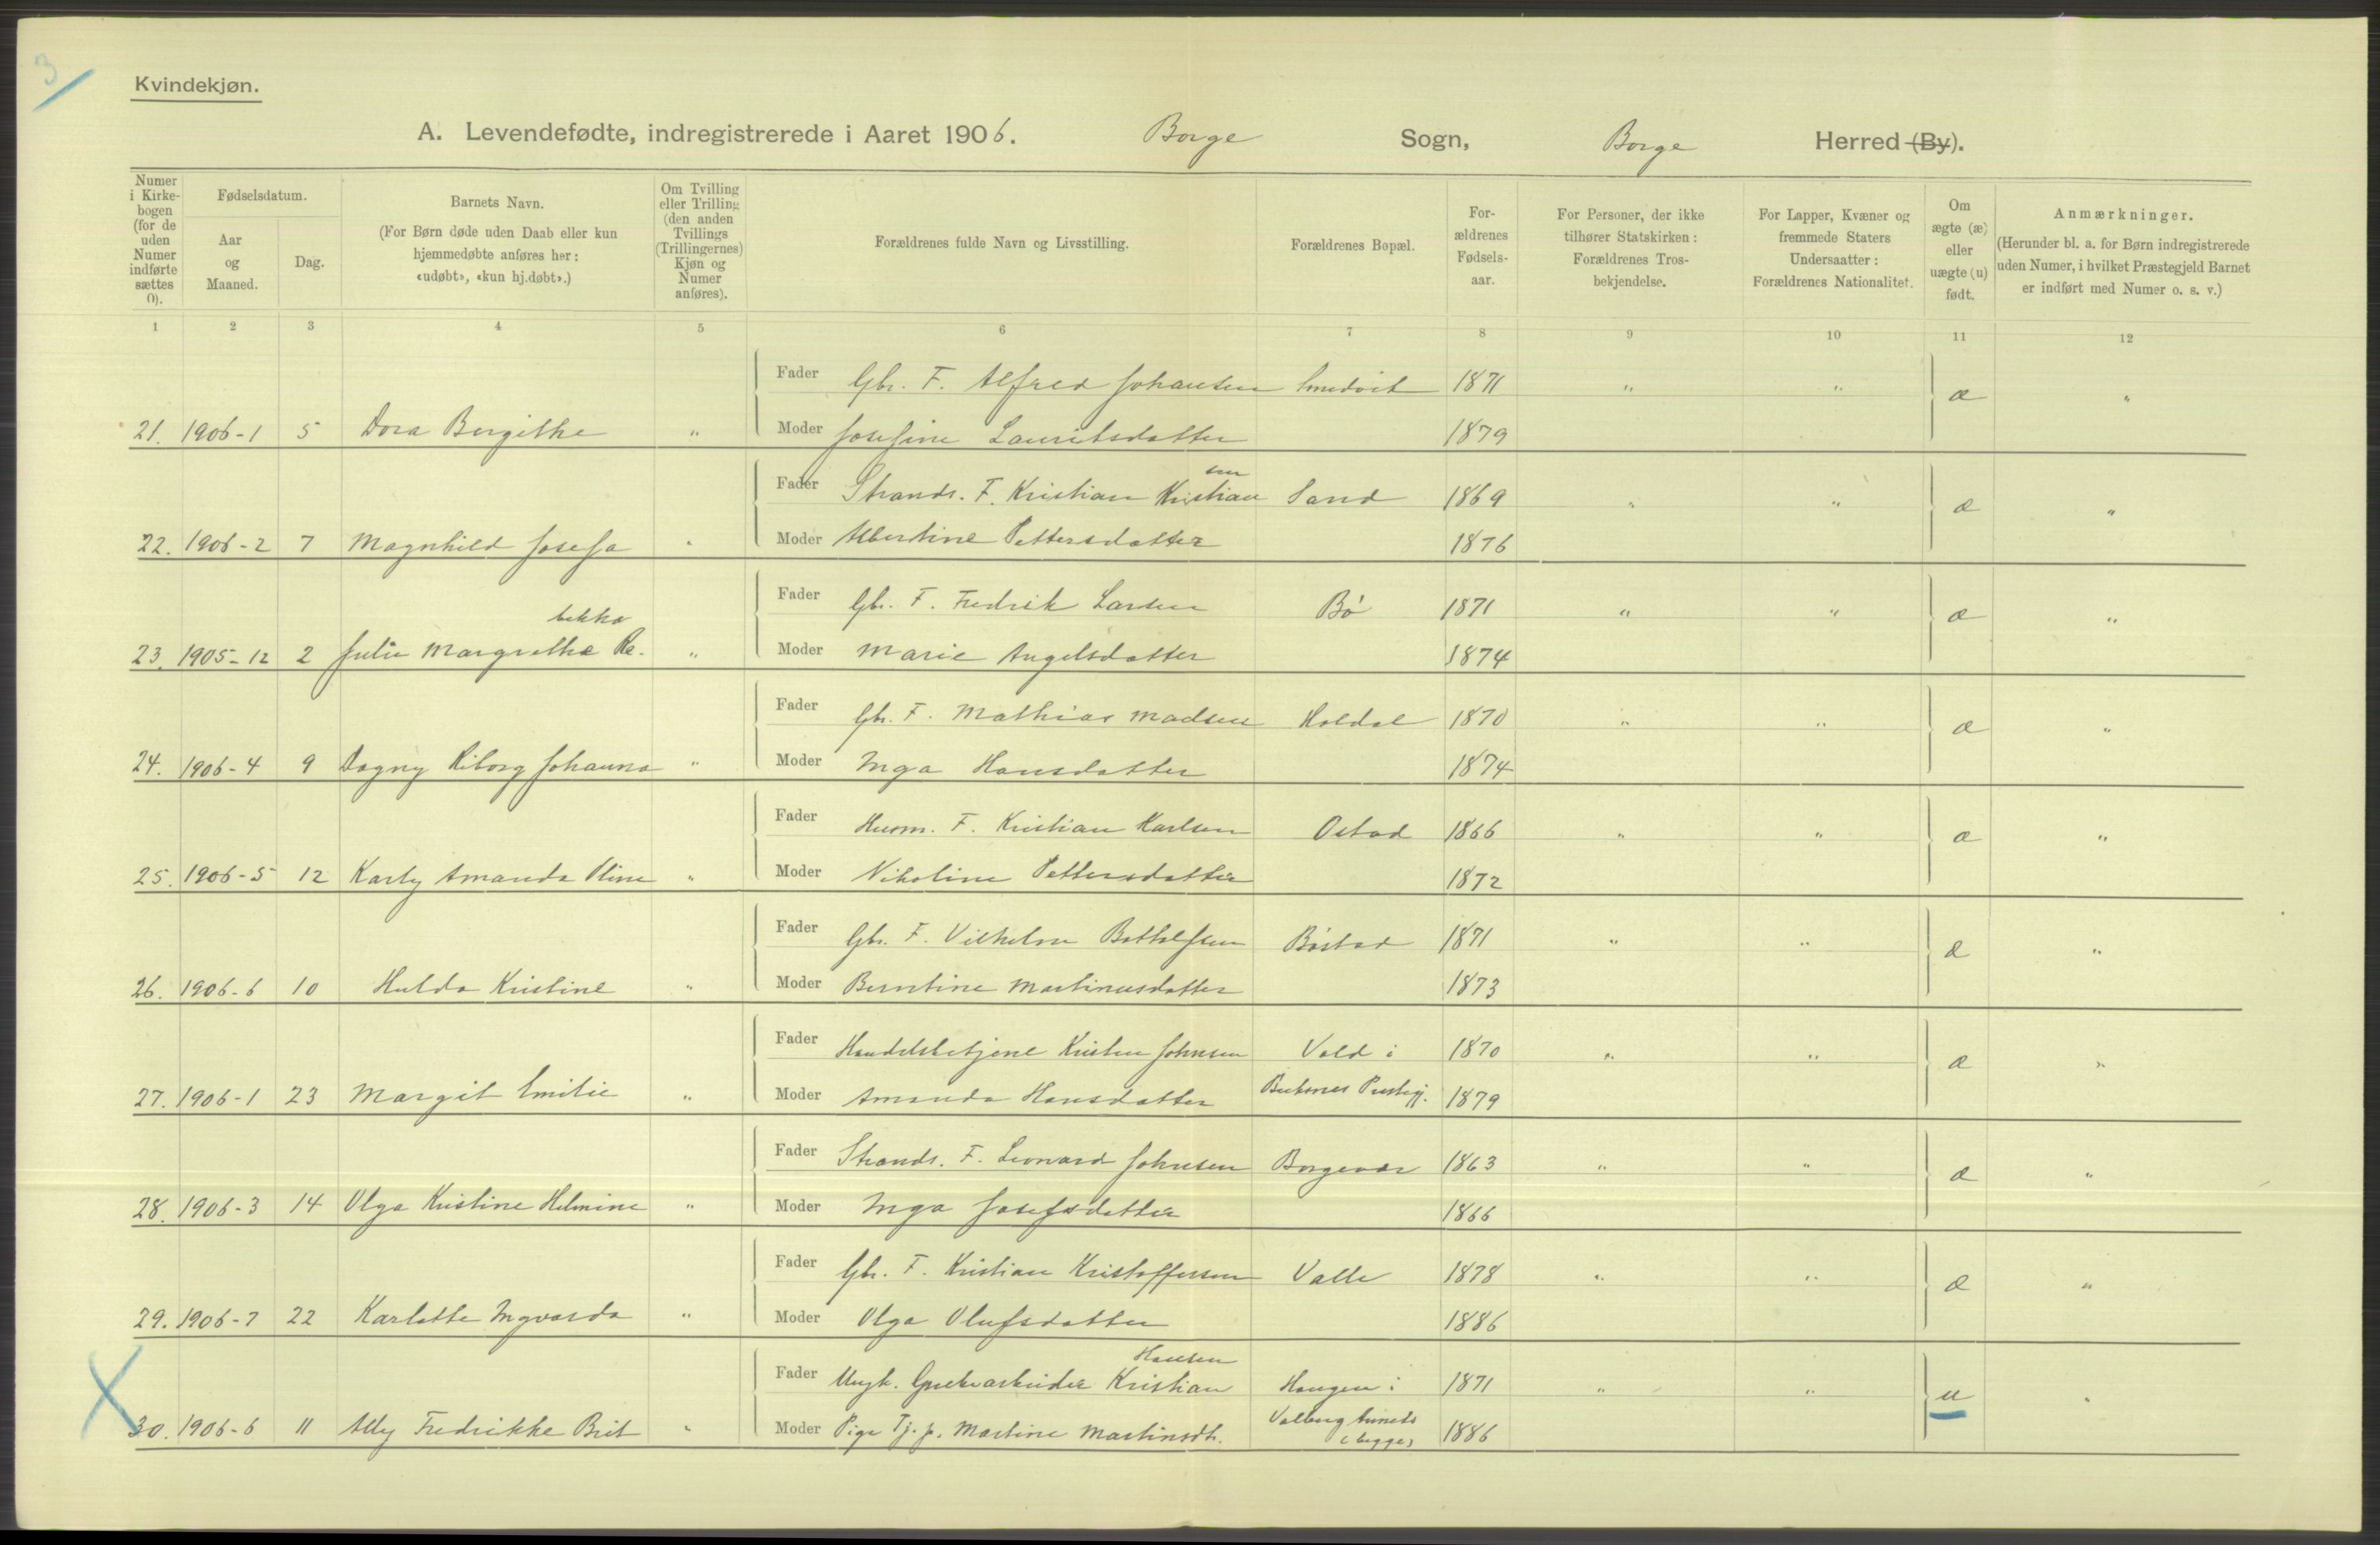 3
Kvindekjøn.
A. Levendefødte, indregistrerede i Aaret 1906. Borge Sogn, Borge Herred (By).
Numer i Kirkebogen (for de uden Numer indførte sættes 0).
Fødselsdatum.
Aar og Maaned.
Dag.
Barnets Navn.
(For Børn døde uden Daab eller kun hjemmedøbte anføres her: «udøbt», «kun hj.døbt».)
Om Tvilling eller Trilling (den anden Tvillings (Trillingernes) Kjøn og Numer anføres).
Forældrenes fulde Navn og Livsstilling.
Forældrenes Bopæl.
Forældrenes Fødselsaar.
For Personer, der ikke tilhører Statskirken: Forældrenes Trosbekjendelse.
For Lapper, Kvæner og fremmede Staters Undersaatter: Forældrenes Nationalitet.
Om ægte (æ) eller uægte (u) født.
Anmærkninger.
(Herunder bl. a. for Børn indregistrerede uden Numer, i hvilket Præstegjeld Barnet er indført med Numer o. s. v.)
1 2 3 4 5 6 7 8 9 10 11 12
Fader Gbr. F. Alfred Johansen Smedvik 1871 " " æ "
21. 1906-1 5 Dora Bergithe " Moder Josefine Lauritsdatter 1879
Fader Strands. F. Kristian Kristiansen Sand 1869 " " æ "
22. 1906-2 7 Magnhild Josefa " Moder Albertine Pettersdatter 1876
Fader Gbr. F. Fredrik Larsen Bö 1871 " " æ "
23. 1905-12 2 Julie Margrethe Rebekka " Moder Marie Angelsdatter 1874
Fader Gbr. F. Mathias Madsen Holdal 1870 " " æ "
24. 1906-4 9 Dagny Riborg Johanna " Moder Inga Hansdatter 1874
Fader Husm. F. Kristian Karlsen Ostad 1866 " " æ "
25. 1906-5 12 Karly Amanda Oline " Moder Nikoline Pettersdatter 1872
Fader Gbr. F. Vilhelm Bottolfsen Böstad 1871 " " æ "
26. 1906-6 10 Hulda Kristine " Moder Berntine Martinusdatter 1873
Fader Handelsbetjent Kristen Johnsen Vold i 1870 " " æ "
27. 1906-1 23 Margit Emilie " Moder Amanda Hansdatter Buksnes Prestegj. 1879
Fader Strands. F. Leonard Johnsen Borgevær 1863 " " æ "
28. 1906-3 14 Olga Kristine Helmine " Moder Inga Josefsdatter 1866
Fader Gbr. F. Kristian Kristoffersen Valle 1878 " " æ "
29. 1906-7 22 Karlotte Ingvarda " Moder Olga Olufsdatter 1886
Hansen
Fader Ungk. Grubearbeider Kristian Haugen i 1871 " " u "
30. 1906-6 11 Ally Fredrikke Brit " Moder Pige Tj. p. Martine Martinsdt. Valberg (begge) 1886